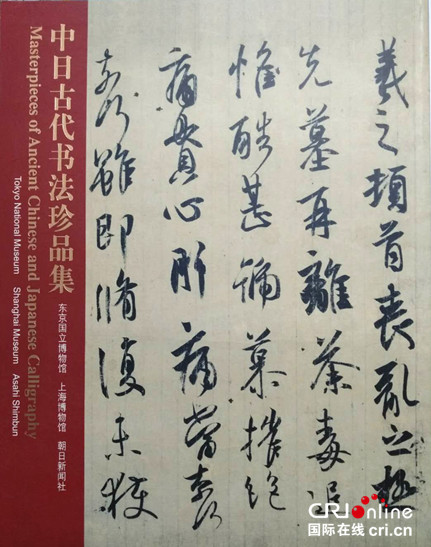 中日古代书法珍品集
Masterpieces of Ancient Chinese and Japanese Calligraphy
东京国立博物馆 上海博物馆 朝日新闻社
Tokyo National Museum Shanghai Museum Asahi Shimbun
羲之頓首喪亂之極
先墓再離荼毒追
惟酷甚號慕摧絕
痛貫心肝痛當奈何
奈何雖即脩復未獲
CRIonline
国际在线 cri.cn